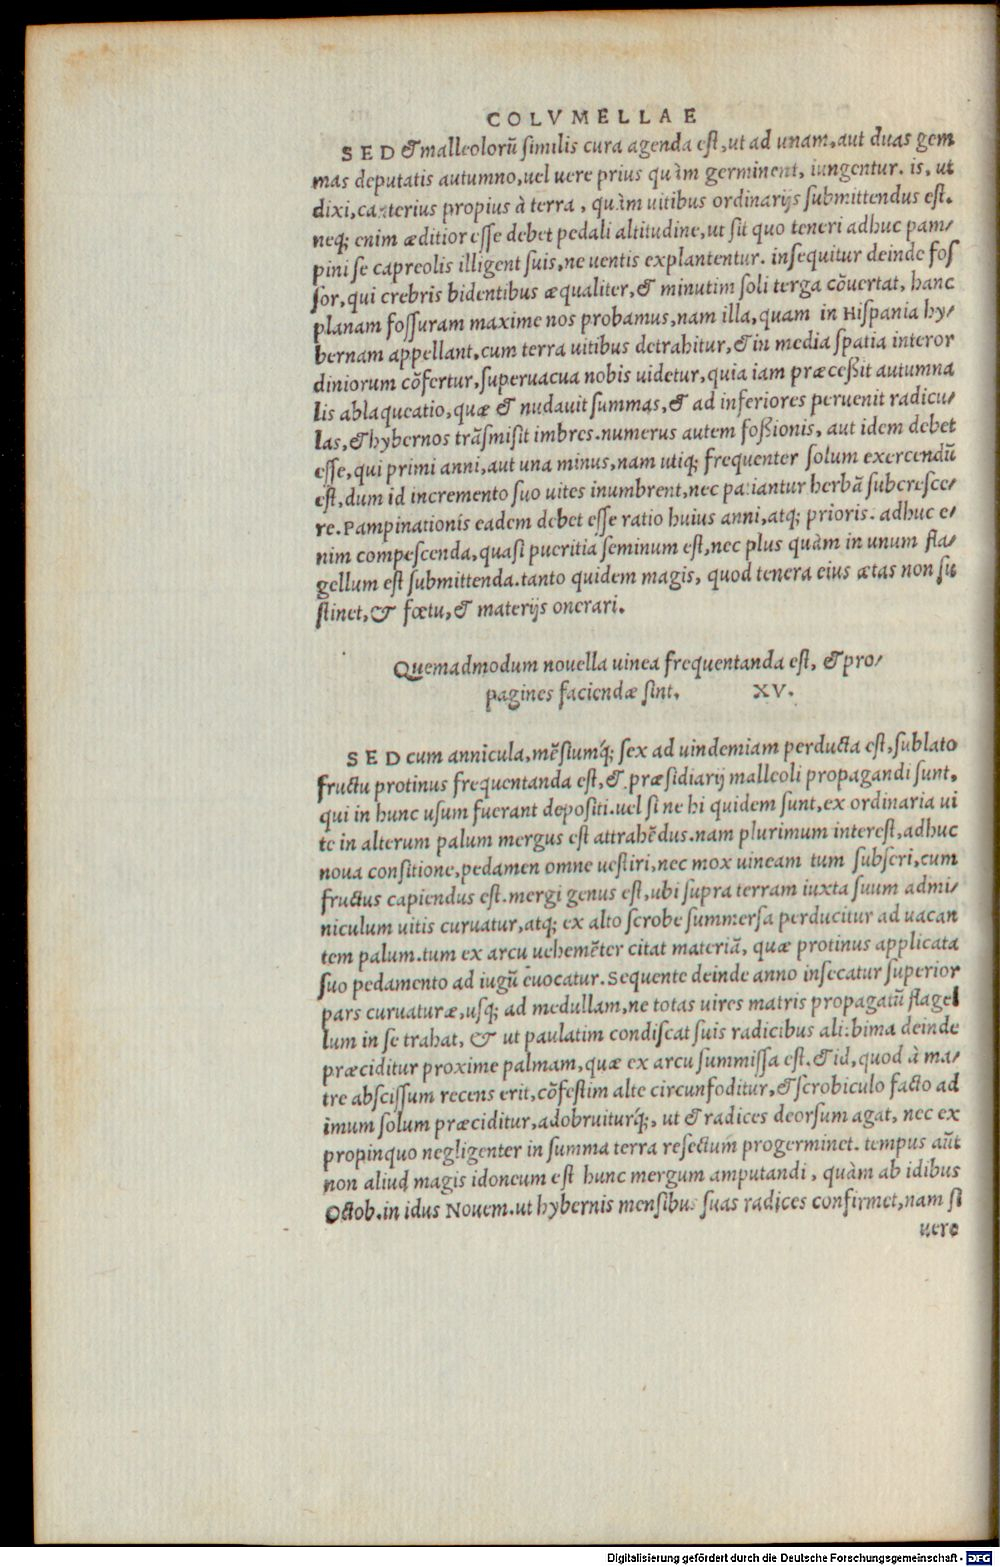 COLVMELLAE
SED & malleolorũ similis cura agenda est, ut ad unam, aut duas gem
mas deputatis autumno, uel uere prius quàm germinent, iungentur. is, ut
dixi, canterius propius à terra, quàm uitibus ordinarijs submittendus est.
neq; enim æditior esse debet pedali altitudine, ut sit quo teneri adhuc pam/
pini se capreolis illigent suis, ne uentis explantentur. insequitur deinde fos
sor, qui crebris bidentibus æqualiter, & minutim soli terga cõuertat, hanc
planam fossuram maxime nos probamus, nam illa, quam in Hispania hy/
bernam appellant, cum terra uitibus detrahitur, & in media spatia interor
diniorum cõfertur, superuacua nobis uidetur, quia iam præceßit autumna
lis ablaqueatio, quæ & nudauit summas, & ad inferiores peruenit radicu/
las, & hybernos trãsmisit imbres. numerus autem foßionis, aut idem debet
esse, qui primi anni, aut una minus, nam utiq; frequenter solum exercendũ
est, dum id incremento suo uites inumbrent, nec patiantur herbã subcresce/
re. Pampinationis eadem debet esse ratio huius anni, atq; prioris. adhuc e/
nim compescenda, quasi pueritia seminum est, nec plus quàm in unum fla/
gellum est submittenda. tanto quidem magis, quod tenera eius ætas non su
stinet, & fœtu, & materijs onerari.
Quemadmodum nouella uinea frequentanda est, & pro/
pagines faciendæ sint. XV.
SED cum annicula, mẽsiumq́; sex ad uindemiam perducta est, sublato
fructu protinus frequentanda est, & præsidiarij malleoli propagandi sunt,
qui in hunc usum fuerant depositi. uel si ne hi quidem sunt, ex ordinaria ui
te in alterum palum mergus est attrahẽdus. nam plurimum interest, adhuc
noua consitione, pedamen omne uestiri, nec mox uineam tum subseri, cum
fructus capiendus est. mergi genus est, ubi supra terram iuxta suum admi/
niculum uitis curuatur, atq; ex alto scrobe summersa perducitur ad uacan
tem palum. tum ex arcu uehemẽter citat materiã, quæ protinus applicata
suo pedamento ad iugũ euocatur. Sequente deinde anno insecatur superior
pars curuaturæ, usq; ad medullam, ne totas uires matris propagatũ flagel
lum in se trahat, & ut paulatim condiscat suis radicibus ali: bima deinde
præciditur proxime palmam, quæ ex arcu summissa est. & id, quod à ma/
tre abscissum recens erit, cõfestim alte circunfoditur, & scrobiculo facto ad
imum solum præciditur, adobruiturq́;, ut & radices deorsum agat, nec ex
propinquo negligenter in summa terra resectum progerminet. tempus aũt
non aliud magis idoneum est hunc mergum amputandi, quàm ab idibus
Octob. in idus Nouem. ut hybernis mensibus suas radices confirmet, nam si
uere
Digitalisierung gefördert durch die Deutsche Forschungsgemeinschaft - DFG